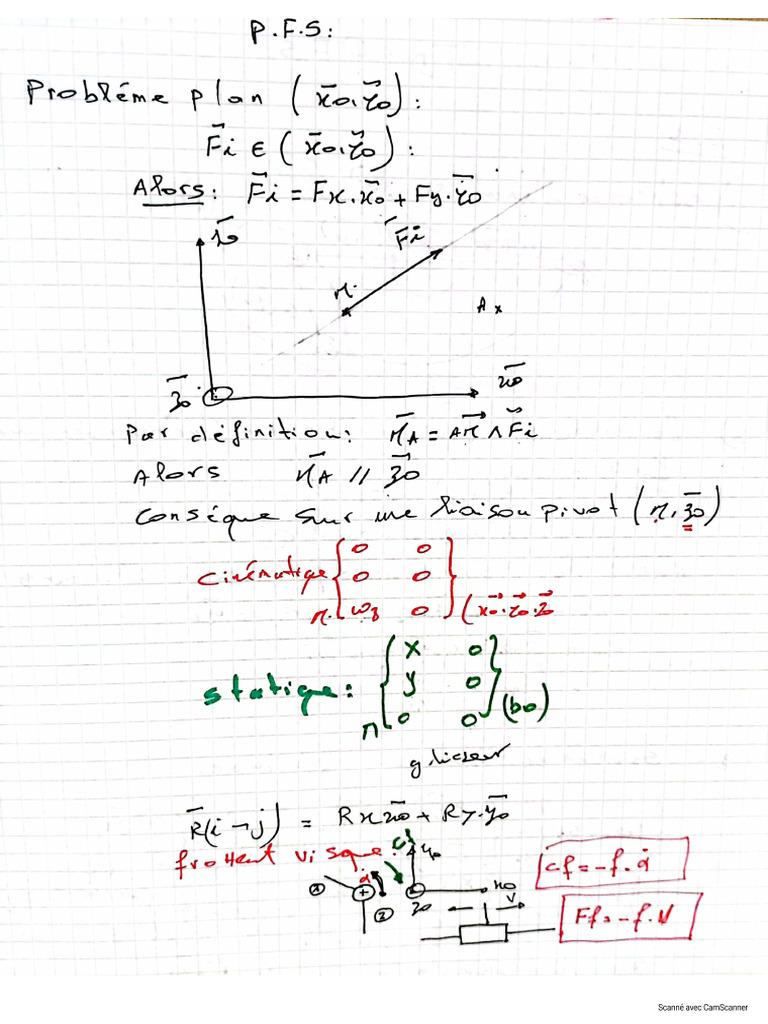 P.F.S:
Probléme plan (x̄₀, ȳ₀):
F̄i ∈ (x̄₀, ȳ₀):
Alors: F̄i = Fx.x̄₀ + Fy.ȳ₀
ȳ₀
F̄i
M
A x
z̄₀
x̄₀
Par définition: M̄A = AM⃗ ∧ F̄i
Alors M̄A // z̄₀
Conséque sur une liaison pivot (M, z̄₀)
Cinématique { 0 0
0 0
M. ωz 0 } (x⃗₀.y⃗₀.z⃗₀
statique: { X 0
Y 0
M 0 0 } (b0)
glisseur
R̄(i→j) = Rx x̄₀ + Ry.ȳ₀
frottent visque: Cf y₀
Cf = -f. α̇
α̇
① + ② z₀ x₀
V
Ff = -f.V
Scanné avec CamScanner